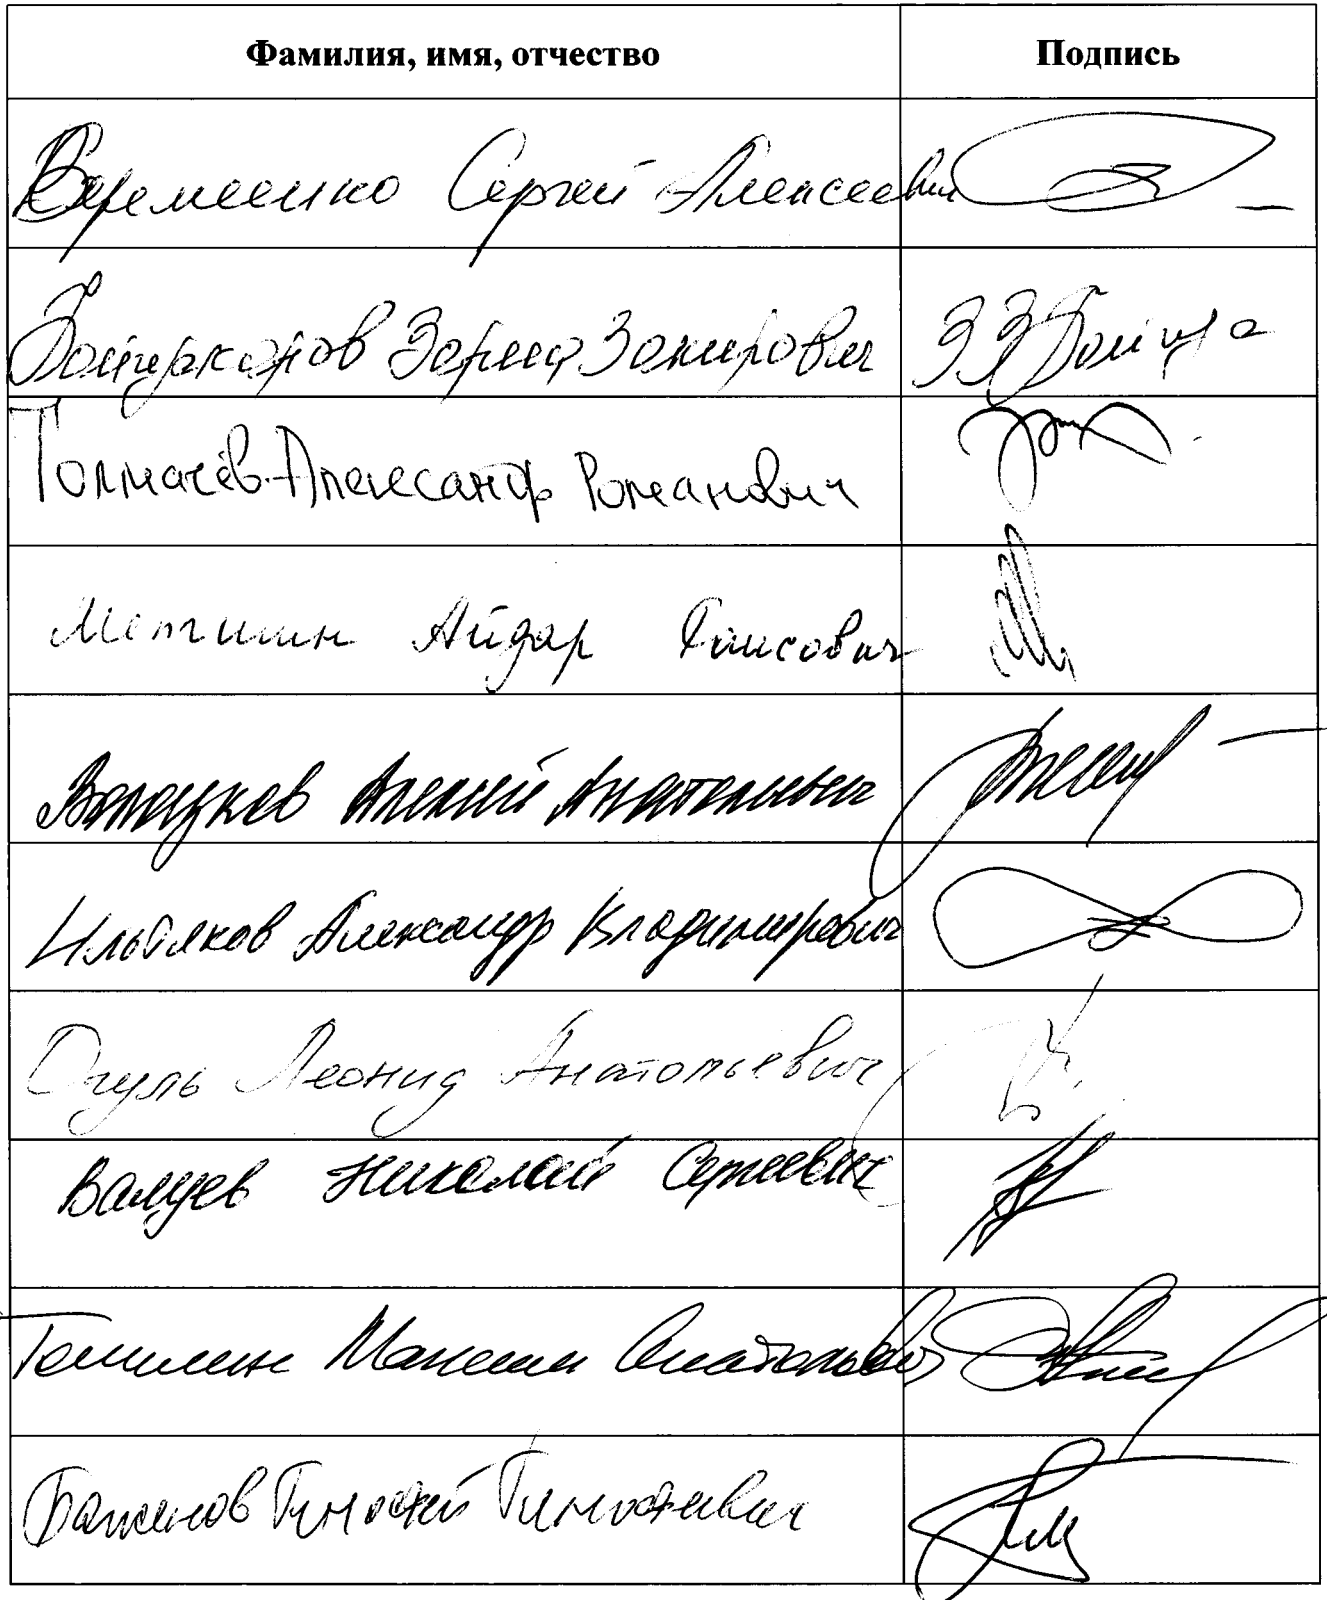 Фамилия, имя, отчество Подпись
Веремеенко Сергей Алексеевич
Байгускаров Зариф Закирович ЗЗ Байгуска
Толмачёв Александр Романович
Метшин Айдар Раисович
Волоцков Алексей Анатольевич
Ильтяков Александр Владимирович
Огуль Леонид Анатольевич
Валуев Николай Сергеевич
Топилин Максим Анатольевич
Баженов Тимофей Тимофеевич